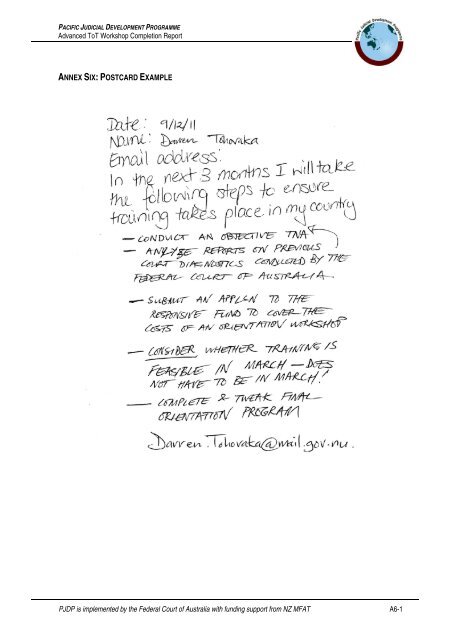 PACIFIC JUDICIAL DEVELOPMENT PROGRAMME
Advanced ToT Workshop Completion Report
Pacific Judicial Development Programme
ANNEX SIX: POSTCARD EXAMPLE
Date: 9/12/11
Name: Darren Tohovaka
Email address:
In the next 3 months I will take
the following steps to ensure
training takes place in my country
— CONDUCT AN OBJECTIVE TNA
— ANALYSE REPORTS ON PREVIOUS
COURT DIAGNOSTICS CONDUCTED BY THE
FEDERAL COURT OF AUSTRALIA
— SUBMIT AN APPLCN TO THE
RESPONSIVE FUND TO COVER THE
COSTS OF AN ORIENTATION WORKSHOP
— CONSIDER WHETHER TRAINING IS
FEASIBLE IN MARCH — DOES
NOT HAVE TO BE IN MARCH!
— COMPLETE & TWEAK FINAL
ORIENTATION PROGRAM
Darren.Tohovaka@mail.gov.nu.
PJDP is implemented by the Federal Court of Australia with funding support from NZ MFAT A6-1